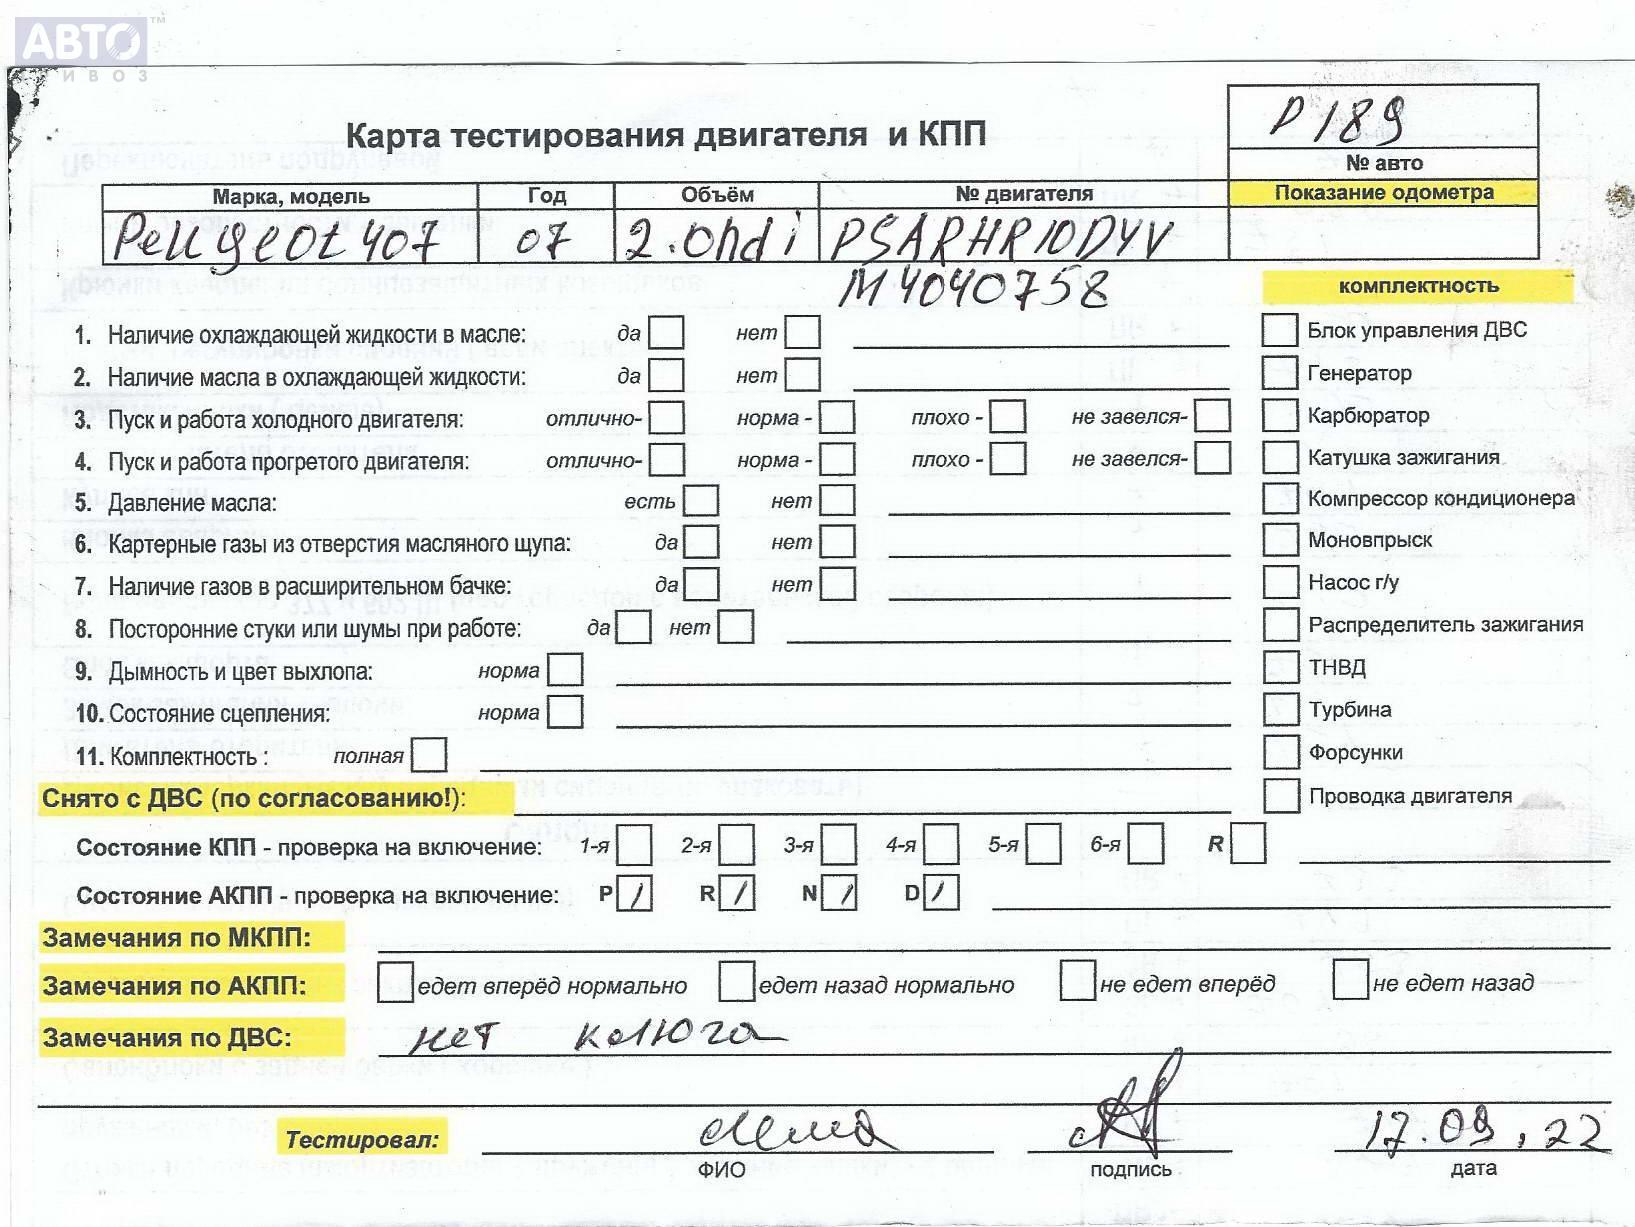 АВТО™
ИВОЗ
Р 189
Карта тестирования двигателя и КПП
№ авто
Марка, модель Год Объём № двигателя Показание одометра
Peugeot 407 07 2.0hdi PSARHR10DYV
M4040758
комплектность
1. Наличие охлаждающей жидкости в масле: да нет Блок управления ДВС
2. Наличие масла в охлаждающей жидкости: да нет Генератор
3. Пуск и работа холодного двигателя: отлично- норма - плохо - не завелся- Карбюратор
4. Пуск и работа прогретого двигателя: отлично- норма - плохо - не завелся- Катушка зажигания
5. Давление масла: есть нет Компрессор кондиционера
6. Картерные газы из отверстия масляного щупа: да нет Моновпрыск
7. Наличие газов в расширительном бачке: да нет Насос г/у
8. Посторонние стуки или шумы при работе: да нет Распределитель зажигания
9. Дымность и цвет выхлопа: норма ТНВД
10. Состояние сцепления: норма Турбина
11. Комплектность : полная Форсунки
Снято с ДВС (по согласованию!): Проводка двигателя
Состояние КПП - проверка на включение: 1-я 2-я 3-я 4-я 5-я 6-я R
Состояние АКПП - проверка на включение: P / R / N / D /
Замечания по МКПП:
Замечания по АКПП: едет вперёд нормально едет назад нормально не едет вперёд не едет назад
Замечания по ДВС: нет келюга
Тестировал: 17.09.22
ФИО подпись дата